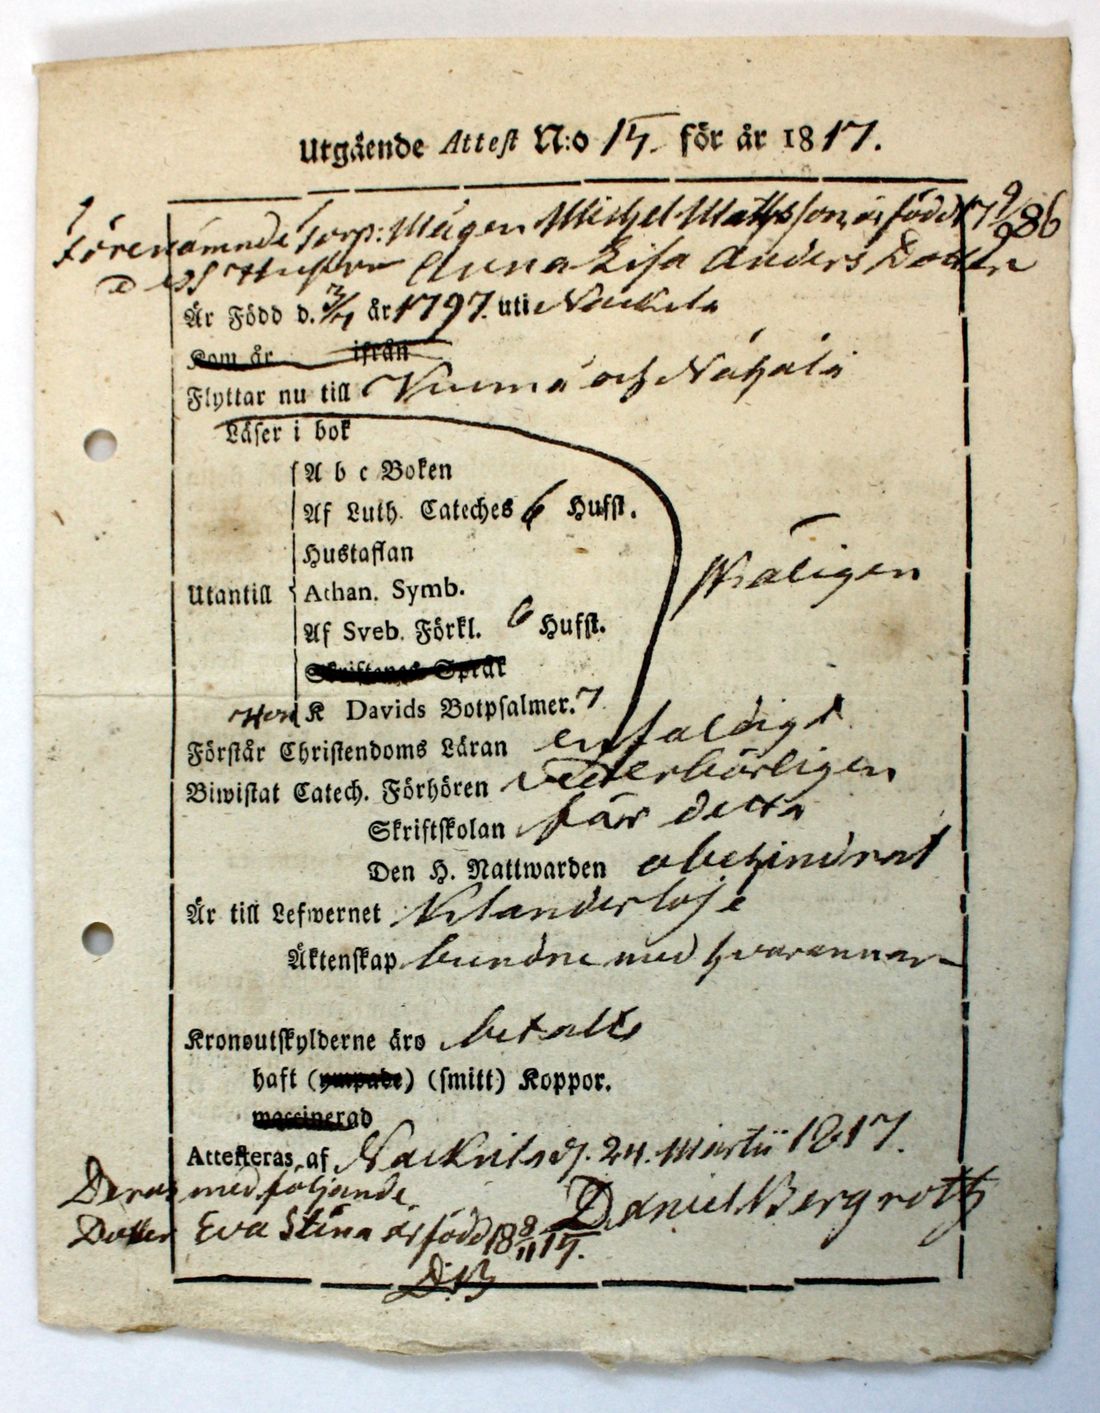 Utgående Attest N:o 15. för år 1817.
Förenämnde Torp: Mågen Michel Mathsson, är född 17 9/9 86
Dess Hustru Anna Lisa Anders Dotter
Är Född d. 3/4 år 1797. uti Nackila
Kom år ifrån
Flyttar nu till Kiuma och
Läser i bok
A b c Boken
Af Luth. Cateches 6 Hufst.
Hustaflan
Utantill Athan. Symb.
Af Sveb. Förkl. 6 Hufst.
Skriftenes Språk
Hon K Davids Botpsalmer. 7
Förstår Christendoms Läran enfaldigt
Biwistat Catech. Förhören wederbörligen
Skriftskolan för detta
Den H. Nattwarden obehindrat
Är till Lefwernet Klanderlöse
Äktenskap bundne med hvarannan
Kronoutskylderne äro betalte
haft (ympade) (smitt) Koppor.
waccinerad
Attesteras af Nackila d. 24. Martii 1817.
Deras medföljande Daniel Bergroth
Dotter Eva Stina är född 18 8/11 15.
DB